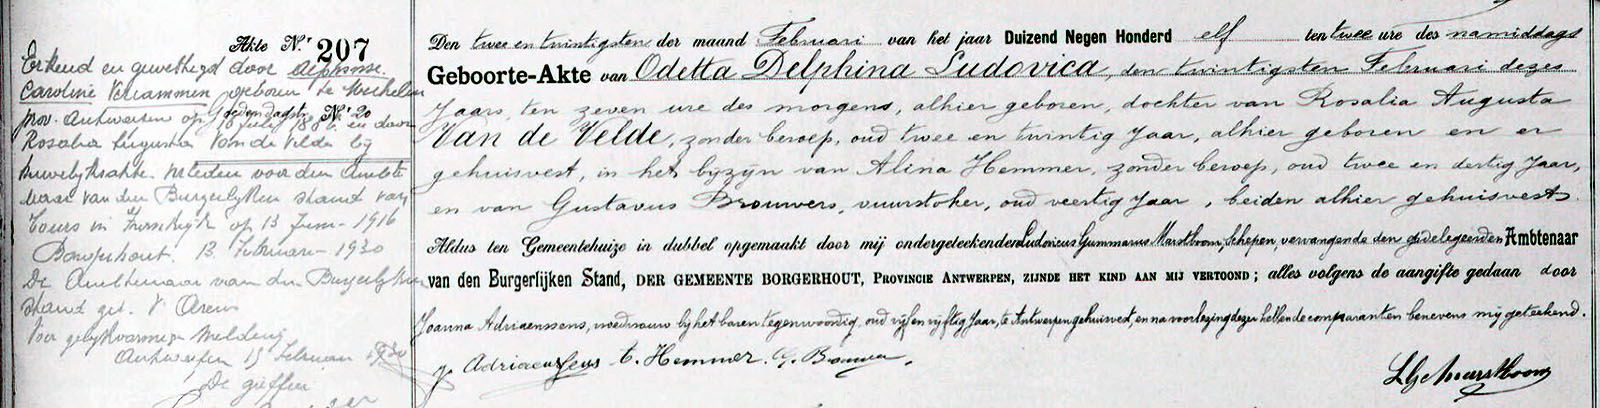 Akte N.r 207
Erkend en gewettigd door Alphonse
Caroline Verlammen geboren te Mechelen
prov. Antwerpen op Goedendagstr. N.r 20
10 Juli 1886 en door
Rosalia Augusta Van de Velde bij
huwelijksakte verleden voor den Ambte
naar van den Burgerlyken stand van
Tours in Frankrijk op 13 Juni 1916
Borgerhout 13 Februari 1930
De Ambtenaar van den Burgerlyken
stand get.
Voor gelykvormige melding
Antwerpen 15 Februari 1930
De griffier
Den twee en twintigsten der maand Februari van het jaar Duizend Negen Honderd elf ten twee ure des namiddags
Geboorte-Akte van Odetta Delphina Ludovica, den twintigsten Februari dezes
Jaars, ten zeven ure des morgens, alhier geboren, dochter van Rosalia Augusta
Van de Velde, zonder beroep, oud twee en twintig Jaar, alhier geboren en er
gehuisvest, in het bijzijn van Alina Hemmer, zonder beroep, oud twee en dertig Jaar,
en van Gustavus Brouwers, vuurstoker, oud veertig Jaar, beiden alhier gehuisvest.
Aldus ten Gemeentehuize in dubbel opgemaakt door mij ondergeteekenden Ludovicus Gummarus Marstboom Schepen, vervangende den gedelegeerden Ambtenaar
van den Burgerlijken Stand, DER GEMEENTE BORGERHOUT, PROVINCIE ANTWERPEN, ZIJNDE HET KIND AAN MIJ VERTOOND; alles volgens de aangifte gedaan door
Joanna Adriaenssens, vroedvrouw bij het baren tegenwoordig, oud vijf en vijftig Jaar, te Antwerpen gehuisvest, en na voorlezing dezer hebben de comparanten benevens mij geteekend.
J. Adriaenssens A. Hemmer. G. Brouwer
L G Marstboom